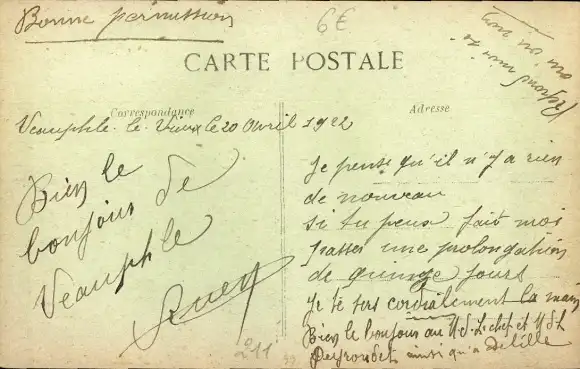 Bonne permission
6€
Réponds moi de
oui ou non
CARTE POSTALE
Correspondance
Adresse
Veauphle le Vieux le 20 Avril 1922
Bien le
bonjour de
Veauphle
Je pense qu'il n'y a rien
de nouveau
si tu peux fait moi
passer une prolongation
de quinze jours
Je te sers cordialement la main
Bien le bonjour au chef et
Peyroudet ainsi qu'a
211